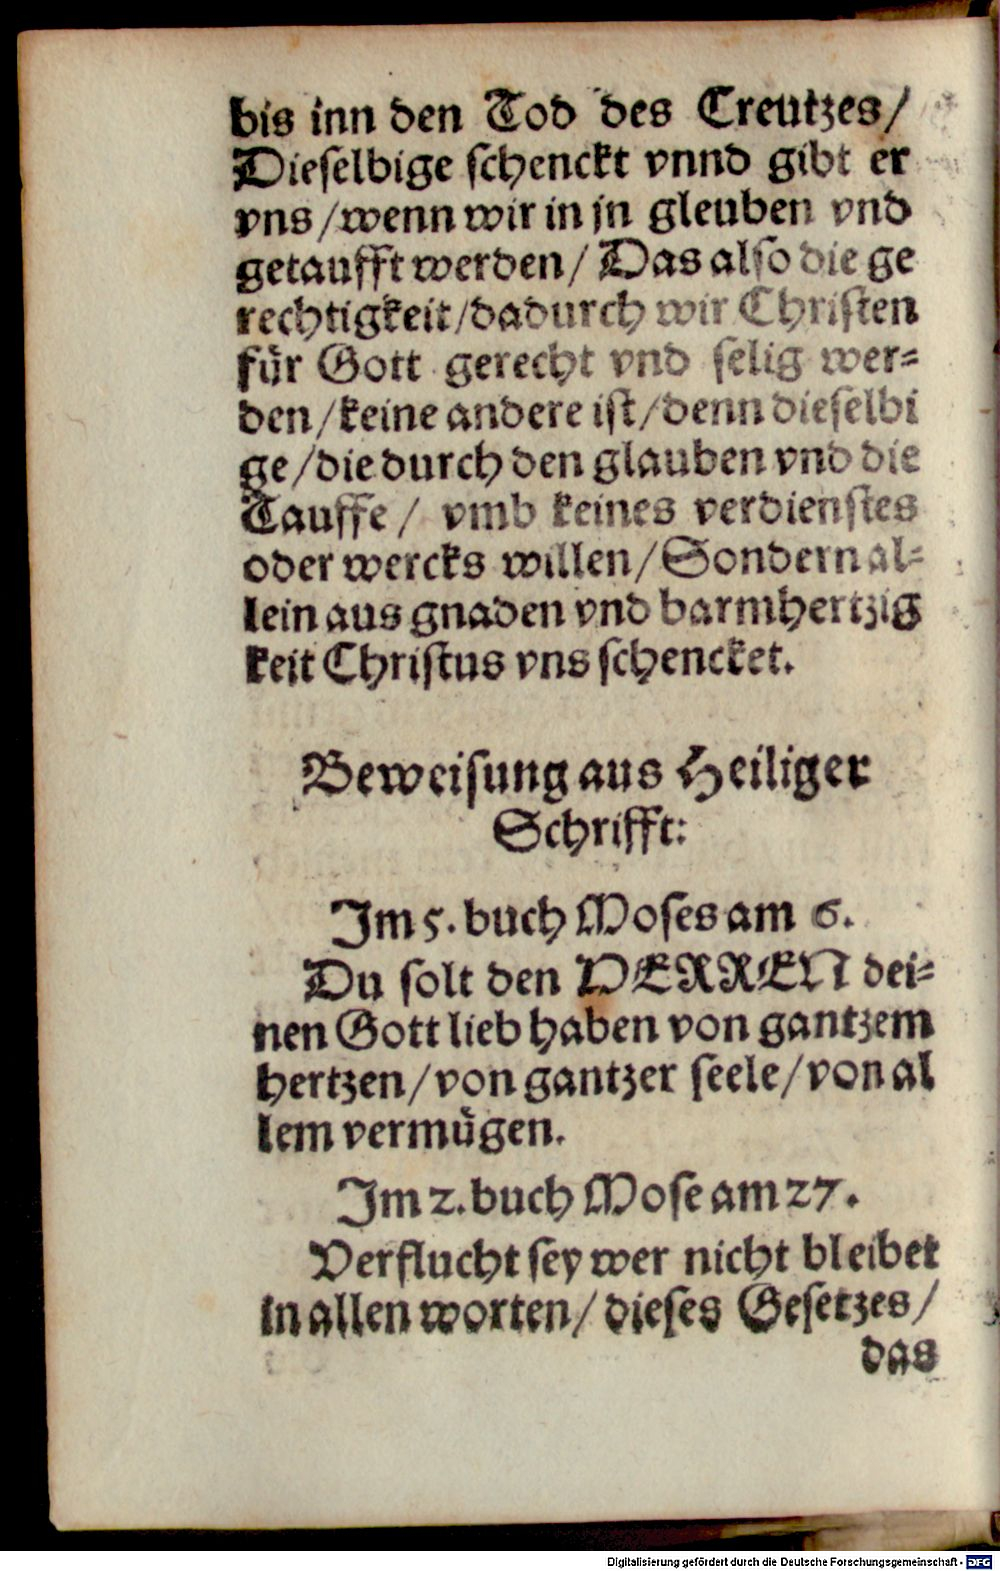 bis inn den Tod des Creutzes/
Dieselbige schenckt vnnd gibt er
vns/wenn wir in jn gleuben vnd
getaufft werden/ Das also die ge
rechtigkeit/dadurch wir Christen
für Gott gerecht vnd selig wer=
den/keine andere ist/denn dieselbi
ge/die durch den glauben vnd die
Tauffe/ vmb keines verdienstes
oder wercks willen/Sondern al=
lein aus gnaden vnd barmhertzig
keit Christus vns schencket.
Beweisung aus Heiliger
Schrifft:
Im 5. buch Moses am 6.
Du solt den HERREN dei=
nen Gott lieb haben von gantzem
hertzen/von gantzer seele/von al
lem vermügen.
Im 2. buch Mose am 27.
Verflucht sey wer nicht bleibet
in allen worten/dieses Gesetzes/
das
Digitalisierung gefördert durch die Deutsche Forschungsgemeinschaft - DFG